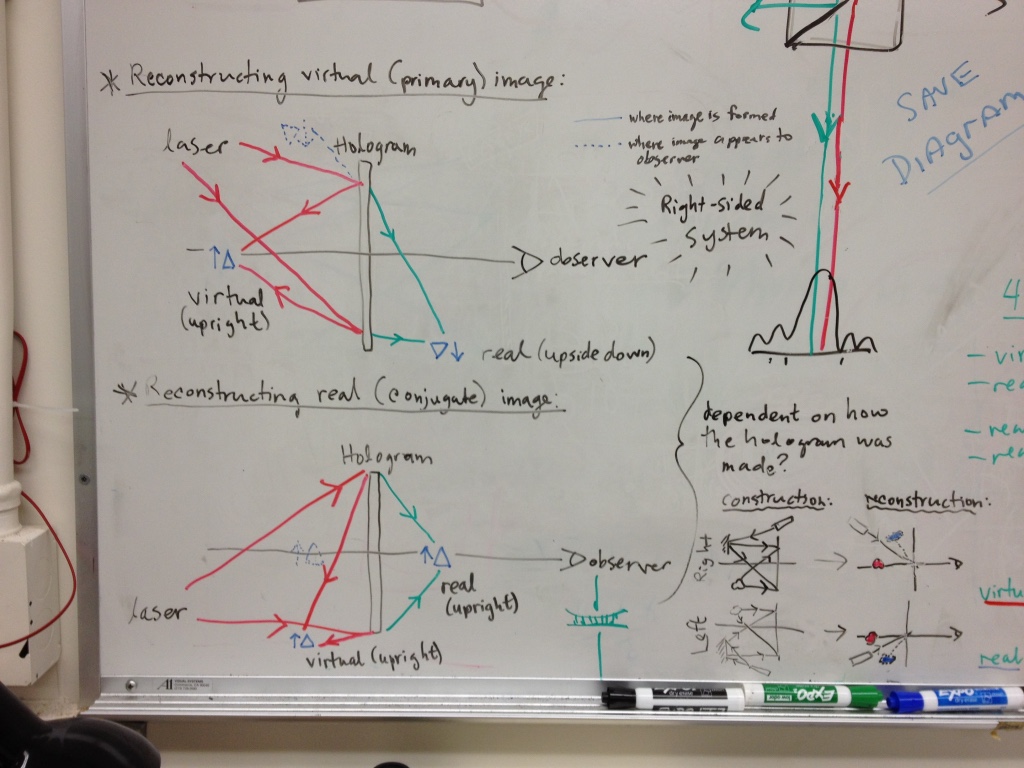 * Reconstructing virtual (primary) image:
laser
Hologram
observer
virtual
(upright)
real (upside down)
where image is formed
where image appears to
observer
Right-sided
System
SAVE
DIAGRAM
* Reconstructing real (conjugate) image:
Hologram
laser
observer
real
(upright)
virtual (upright)
dependent on how
the hologram was
made?
construction:
reconstruction:
Right
Left
4
- vir
- rea
- rea
- rea
virtu
real
EXPO
EXPO